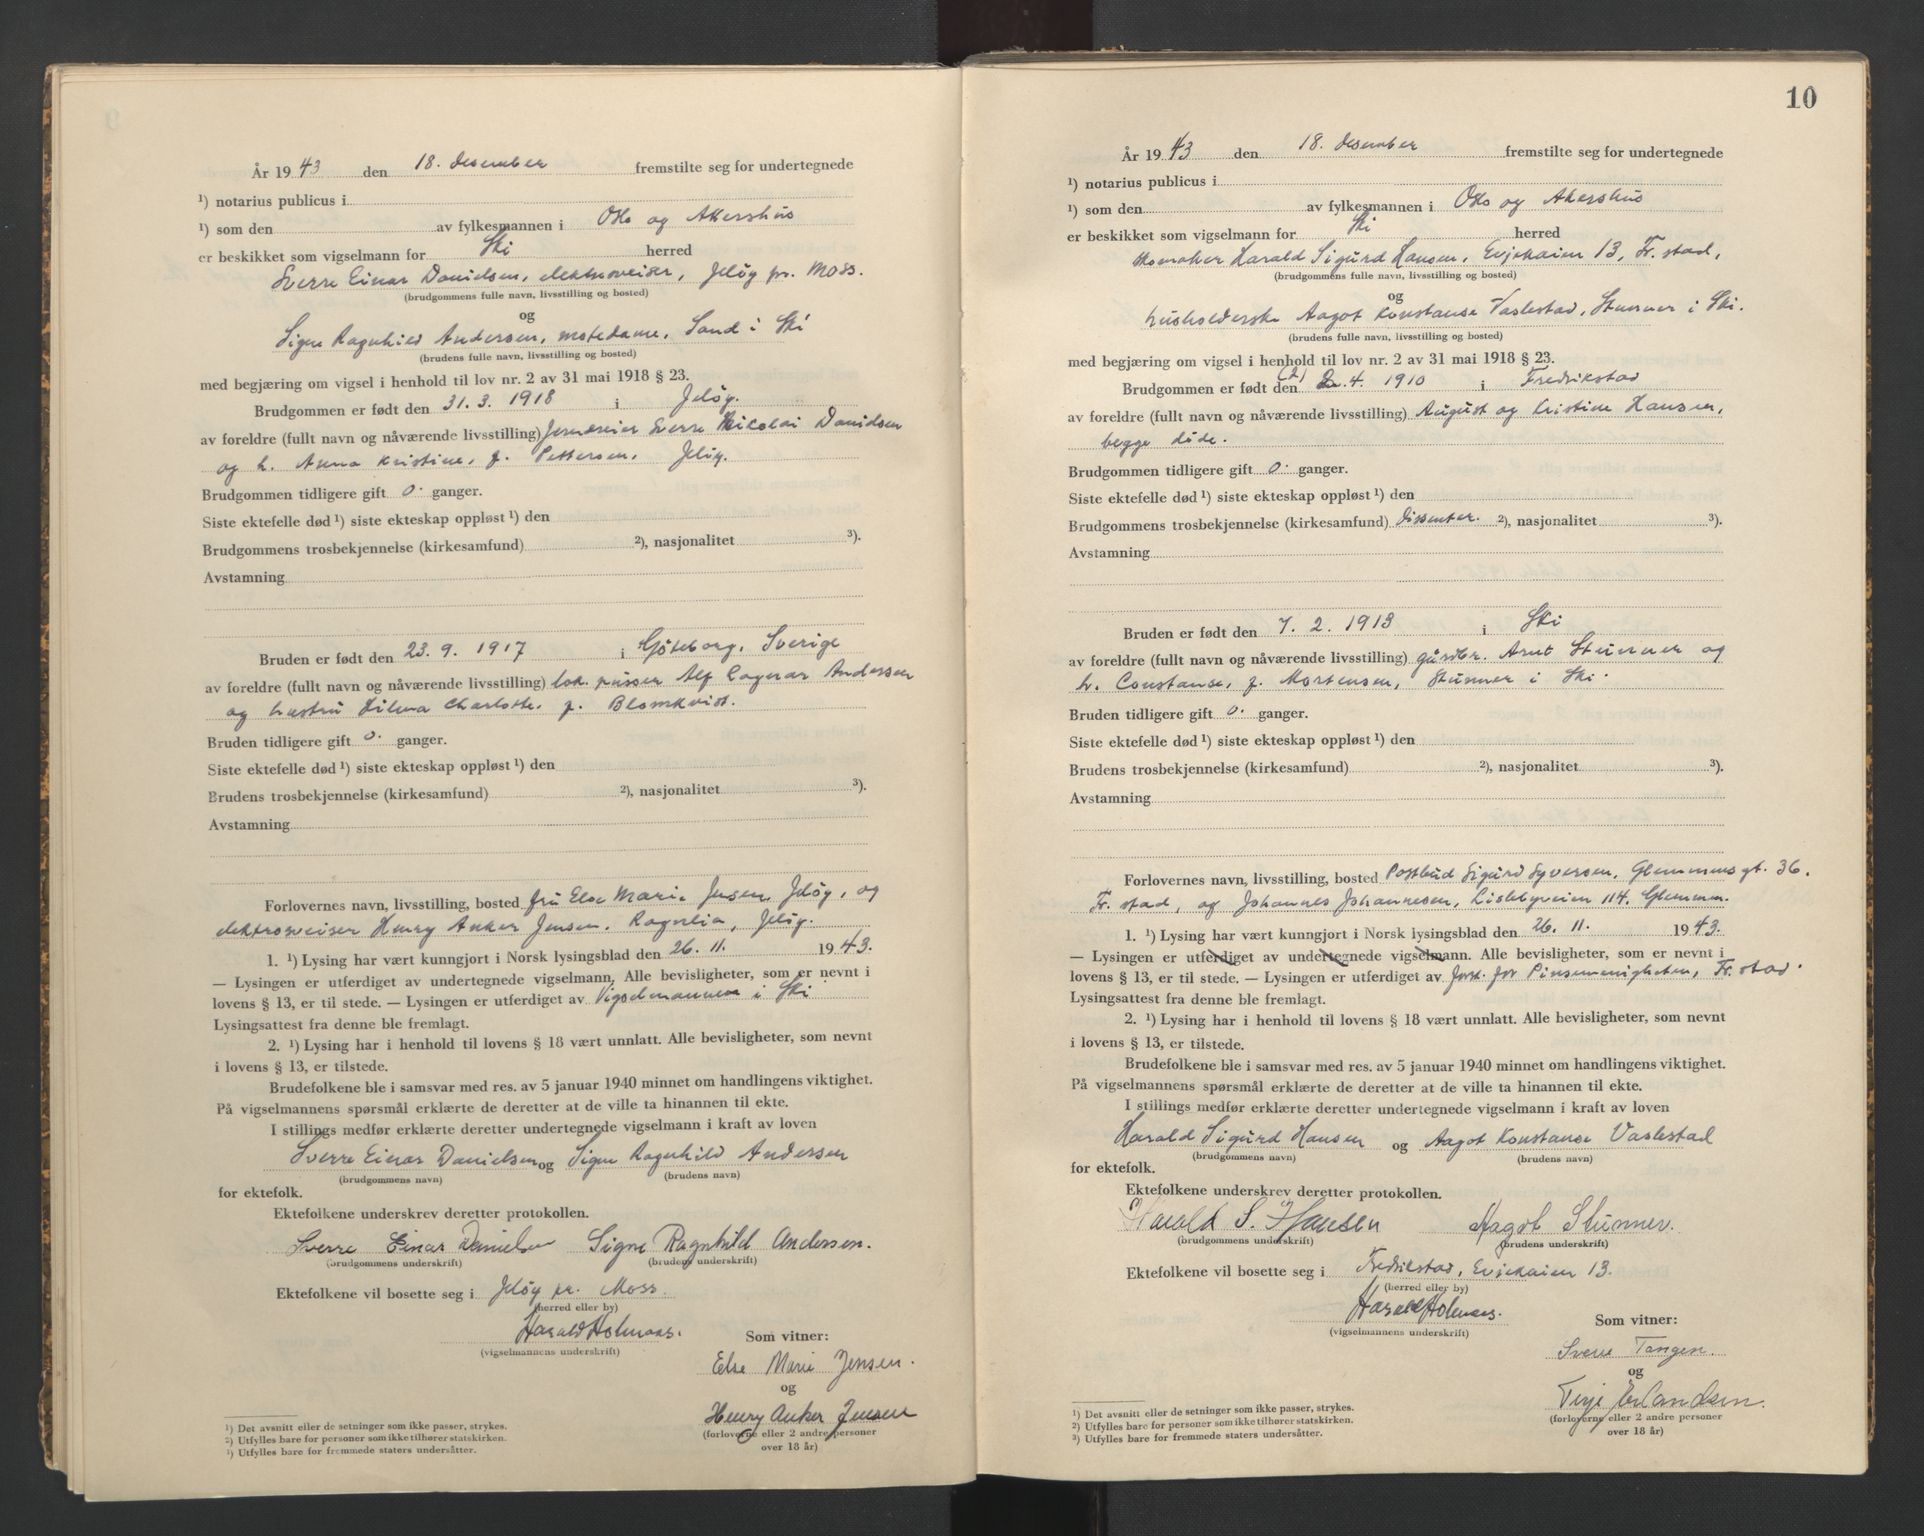 År 1943 den 18. desember fremstilte seg for undertegnede
¹) notarius publicus i
¹) som den av fylkesmannen i Oslo og Akershus
er beskikket som vigselmann for Ski herred
Sverre Einar Danielsen, elektrosveiser, Jeløy pr. Moss.
(brudgommens fulle navn, livsstilling og bosted)
og
Signe Ragnhild Andersen, motedame, Sand i Ski
(brudens fulle navn, livsstilling og bosted)
med begjæring om vigsel i henhold til lov nr. 2 av 31 mai 1918 § 23.
Brudgommen er født den 31. 3. 1918 i Jeløy.
av foreldre (fullt navn og nåværende livsstilling) Sverre Nikolai Danielsen
og h. Anna Kristine, f. Pettersen, Jeløy.
Brudgommen tidligere gift 0. ganger.
Siste ektefelle død ¹) siste ekteskap oppløst ¹) den
Brudgommens trosbekjennelse (kirkesamfund) ²), nasjonalitet ³).
Avstamning
Bruden er født den 23. 9. 1917 i Gøteborg, Sverige
av foreldre (fullt navn og nåværende livsstilling) lok. pusser Alf Ragnar Andersen
og hustru Hilma Charlotte, f. Blomkvist.
Bruden tidligere gift 0. ganger.
Siste ektefelle død ¹) siste ekteskap oppløst ¹) den
Brudens trosbekjennelse (kirkesamfund) ²), nasjonalitet ³).
Avstamning
Forlovernes navn, livsstilling, bosted fru Else Marie Jensen, Jeløy, og
elektrosveiser Henry Anker Jensen, Rognlia, Jeløy.
1. ¹) Lysing har vært kunngjort i Norsk lysingsblad den 26. 11. 1943.
— Lysingen er utferdiget av undertegnede vigselmann. Alle bevisligheter, som er nevnt i
lovens § 13, er til stede. — Lysingen er utferdiget av Vigselmannen i Ski
Lysingsattest fra denne ble fremlagt.
2. ¹) Lysing har i henhold til lovens § 18 vært unnlatt. Alle bevisligheter, som nevnt
i lovens § 13, er tilstede.
Brudefolkene ble i samsvar med res. av 5 januar 1940 minnet om handlingens viktighet.
På vigselmannens spørsmål erklærte de deretter at de ville ta hinannen til ekte.
I stillings medfør erklærte deretter undertegnede vigselmann i kraft av loven
Sverre Einar Danielsen og Signe Ragnhild Andersen
(brudgommens navn) (brudens navn)
for ektefolk.
Ektefolkene underskrev deretter protokollen.
Sverre Einar Danielsen Signe Ragnhild Andersen.
(brudgommens underskrift) (brudens underskrift)
Ektefolkene vil bosette seg i Jeløy pr. Moss.
(herred eller by)
Harald Holmaas.
(vigselmannens underskrift)
Som vitner:
Else Marie Jensen.
og
Henry Anker Jensen
(forloverne eller 2 andre personer
over 18 år)
¹) Det avsnitt eller de setninger som ikke passer, strykes.
²) Utfylles bare for personer som ikke tilhører statskirken.
³) Utfylles bare for fremmede staters undersåtter.
10
År 1943 den 18. desember fremstilte seg for undertegnede
¹) notarius publicus i
¹) som den av fylkesmannen i Oslo og Akershus
er beskikket som vigselmann for Ski herred
Skomaker Harald Sigurd Hansen, Evjekaien 13, Fr.stad,
(brudgommens fulle navn, livsstilling og bosted)
og
husholderske Aagot Konstanse Vaslestad, Stunner i Ski.
(brudens fulle navn, livsstilling og bosted)
med begjæring om vigsel i henhold til lov nr. 2 av 31 mai 1918 § 23.
Brudgommen er født den (2) 2. 4. 1910 i Fredrikstad
av foreldre (fullt navn og nåværende livsstilling) August og Kristine Hansen,
begge døde.
Brudgommen tidligere gift 0. ganger.
Siste ektefelle død ¹) siste ekteskap oppløst ¹) den
Brudgommens trosbekjennelse (kirkesamfund) dissenter. ²), nasjonalitet ³).
Avstamning
Bruden er født den 7. 2. 1913 i Ski
av foreldre (fullt navn og nåværende livsstilling) gårdbr. Arnt Stunner og
h. Constanse, f. Mortensen, Stunner i Ski.
Bruden tidligere gift 0. ganger.
Siste ektefelle død ¹) siste ekteskap oppløst ¹) den
Brudens trosbekjennelse (kirkesamfund) ²), nasjonalitet ³).
Avstamning
Forlovernes navn, livsstilling, bosted Postbud Sigurd Syversen, Glemmensgt. 36.
Fr.stad, og Johannes Johannesen, Lislebyveien 114, Glemmen.
1. ¹) Lysing har vært kunngjort i Norsk lysingsblad den 26. 11. 1943.
— Lysingen er utferdiget av undertegnede vigselmann. Alle bevisligheter, som er nevnt i
lovens § 13, er til stede. — Lysingen er utferdiget av forst. for Pinsemenigheten, Fr.stad.
Lysingsattest fra denne ble fremlagt.
2. ¹) Lysing har i henhold til lovens § 18 vært unnlatt. Alle bevisligheter, som nevnt
i lovens § 13, er tilstede.
Brudefolkene ble i samsvar med res. av 5 januar 1940 minnet om handlingens viktighet.
På vigselmannens spørsmål erklærte de deretter at de ville ta hinannen til ekte.
I stillings medfør erklærte deretter undertegnede vigselmann i kraft av loven
Harald Sigurd Hansen og Aagot Konstanse Vaslestad
(brudgommens navn) (brudens navn)
for ektefolk.
Ektefolkene underskrev deretter protokollen.
Harald S. Hansen Aagot Stunner.
(brudgommens underskrift) (brudens underskrift)
Ektefolkene vil bosette seg i Fredrikstad, Evjekaien 13.
(herred eller by)
Harald Holmaas.
(vigselmannens underskrift)
Som vitner:
Sverre Tangen.
og
Terje Erlandsen.
(forloverne eller 2 andre personer
over 18 år)
¹) Det avsnitt eller de setninger som ikke passer, strykes.
²) Utfylles bare for personer som ikke tilhører statskirken.
³) Utfylles bare for fremmede staters undersåtter.